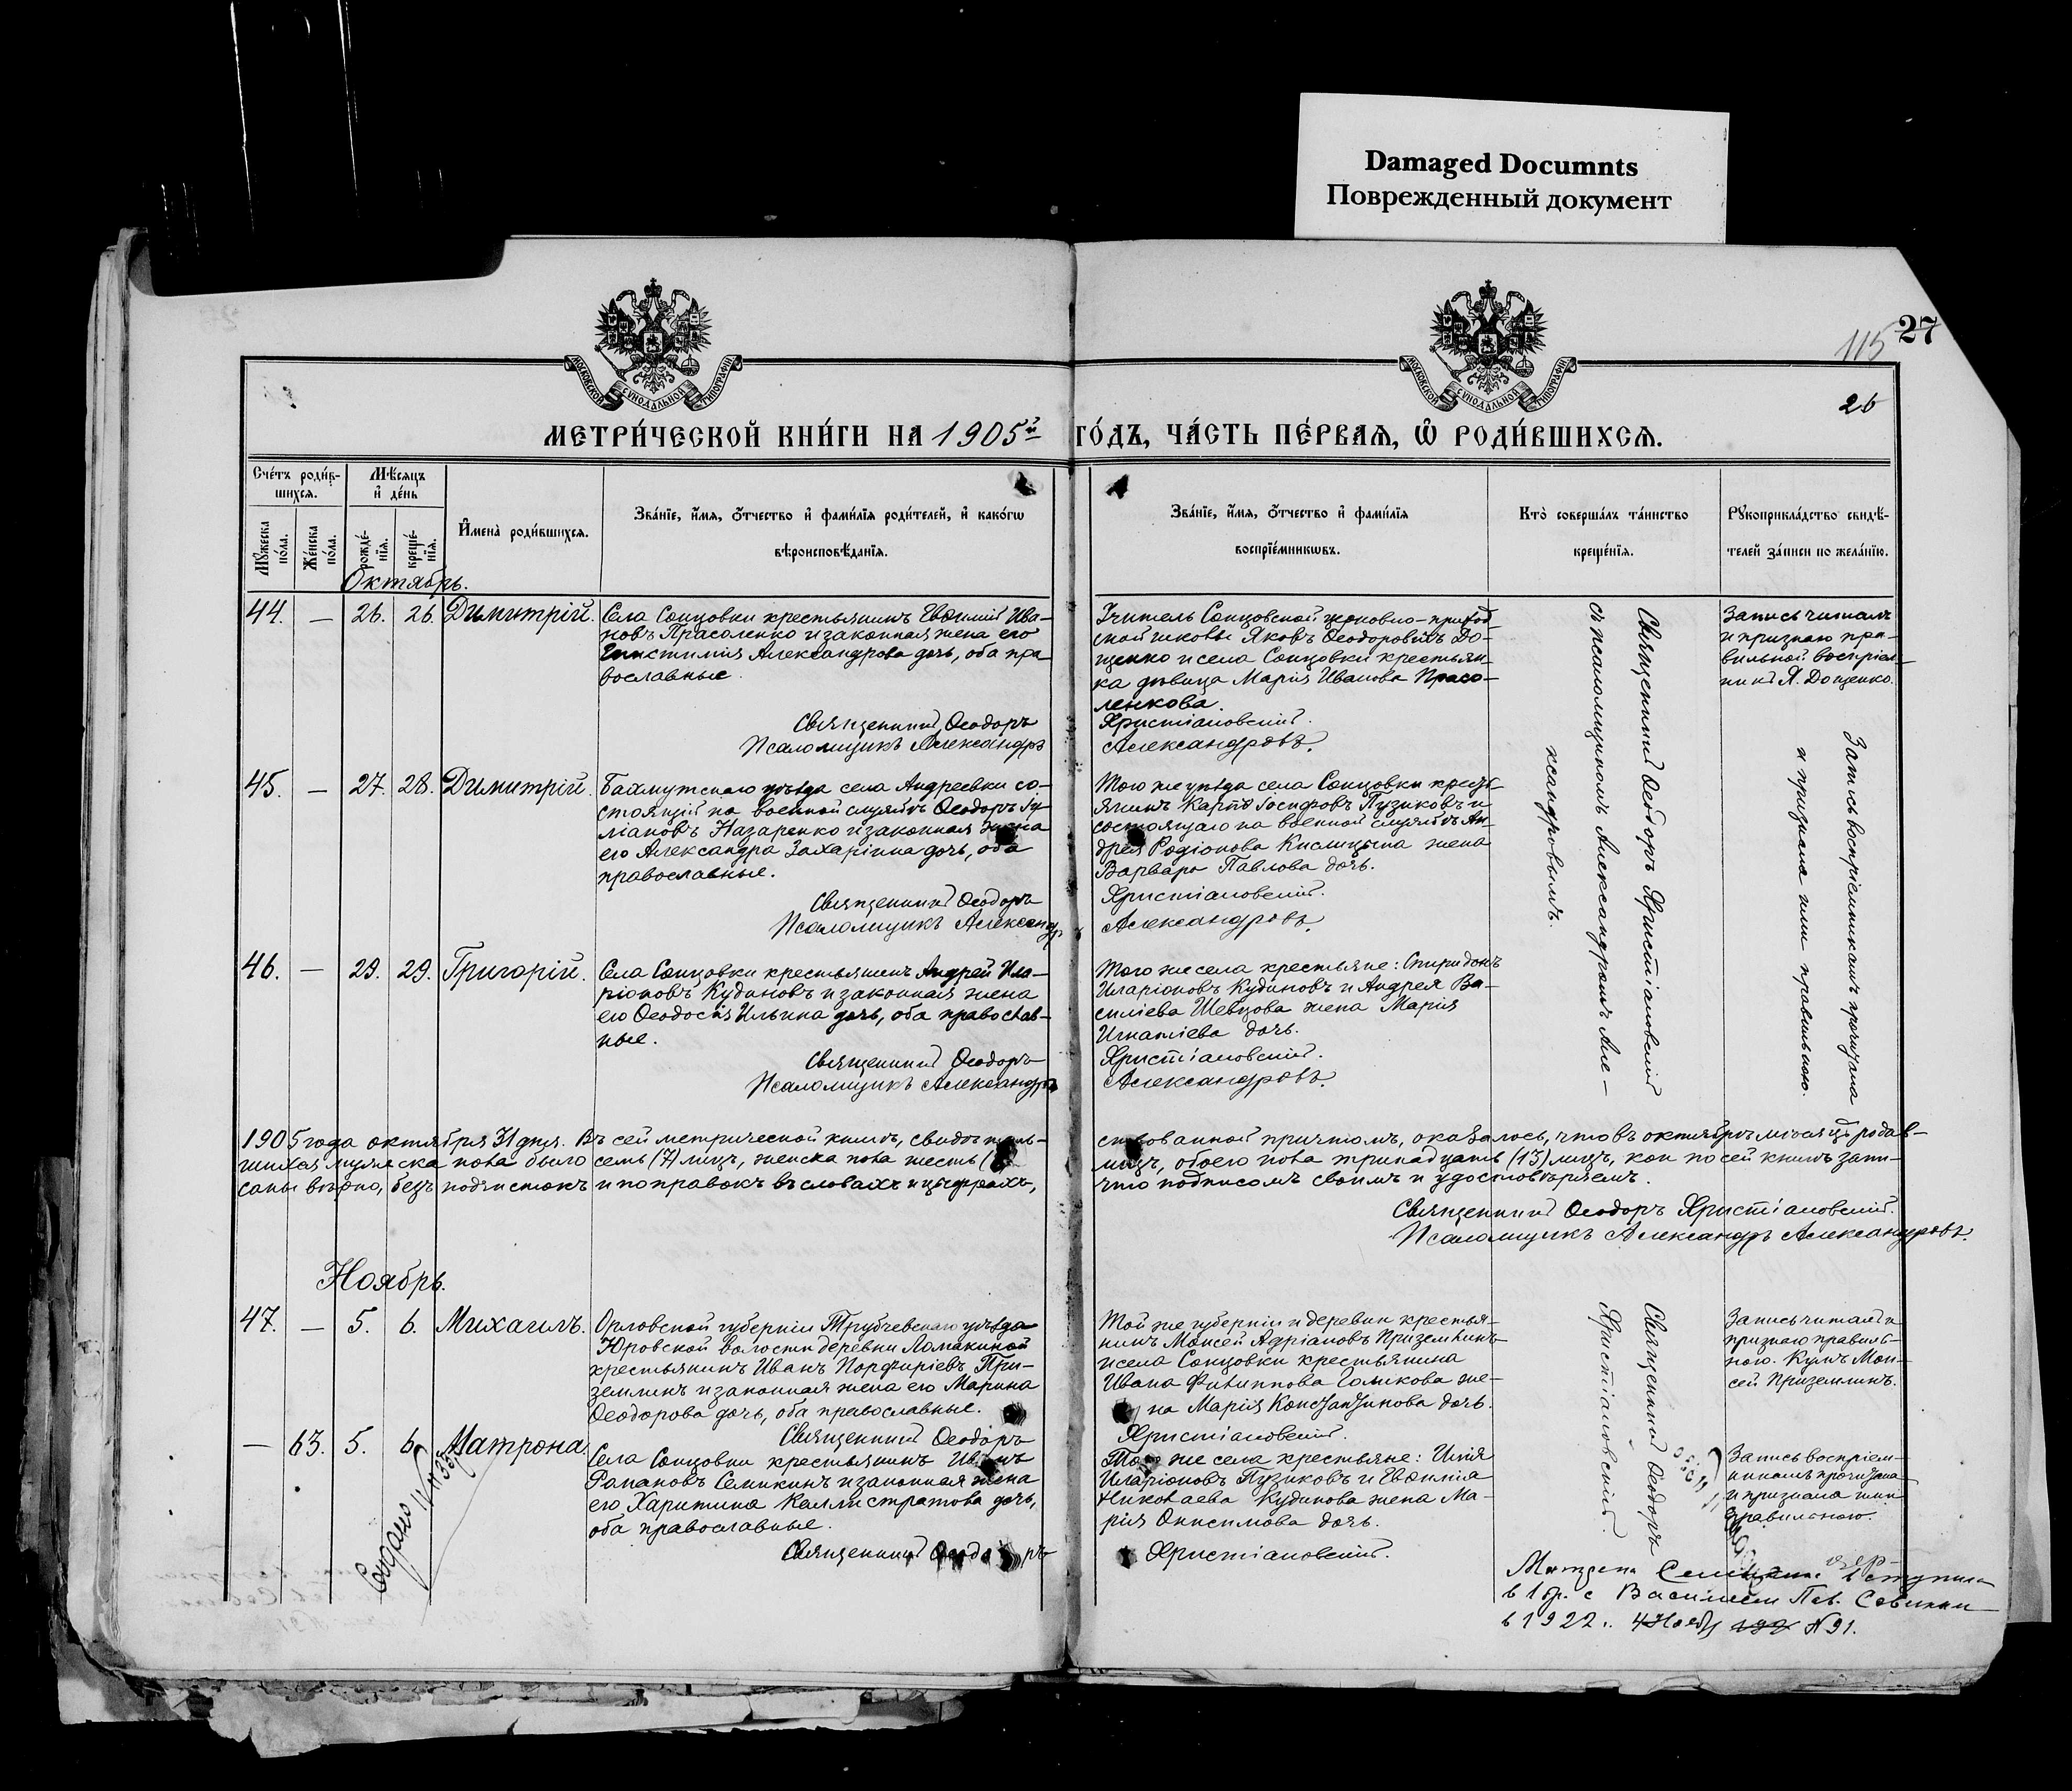 Damaged Documnts
Поврежденный документ
27
115
26
МОСКОВСКОЙ СѴНОДАЛЬНОЙ ТИПОГРАФІИ
МОСКОВСКОЙ СѴНОДАЛЬНОЙ ТИПОГРАФІИ
МЕТРИ́ЧЕСКОЙ КНИ́ГИ НА 1905й ГО́ДЪ, ЧА́СТЬ ПЕ́РВАЯ, Ѡ҆ РОДИ́ВШИХСЯ.
Сче́тъ роди́в-
шихся.
Мꙋ́жеска по́ла.
Же́нска по́ла.
Мѣ́сяцъ
и҆ де́нь
рожде́-нїя.
креще́-нїя.
И҆мена̀ роди́вшихся.
Зва́нїе, и҆́мя, ѻ҆́тчество и҆ фами́лїя роди́телей, и҆ како́гѡ
вѣроисповѣ́данїя.
Зва́нїе, и҆́мя, ѻ҆́тчество и҆ фами́лїя
воспрїе́мникѡвъ.
Кто̀ соверша́лъ та́инство
креще́нїя.
Рꙋкоприкла́дство свидѣ́-
телей за́писи по жела́нїю.
Октябрь.
44. — 26. 26. Димитрій.
Села Сонцовки крестьянинъ Евѳимій Ива-
новъ Прасоленко и законная жена его
Александрова дочь, оба пра-
вославные.
Священникъ Ѳеодоръ
Псаломщикъ Александръ
Учитель Сонцовской церковно-приход
ской школы Яковъ Ѳеодоровичъ До-
щенко и села Сонцовки крестьян-
ка дѣвица Марія Иванова Прасо-
ленкова.
Христіановскій.
Александровъ.
Священникъ Ѳеодоръ Христіановскій
съ псаломщикомъ Александромъ Але-
ксандровымъ.
Запись читалъ
и признаю пра-
вильной воспріем-
никъ Я. Дощенко.
45. — 27. 28. Димитрій.
Бахмутскаго уѣзда села Андреевки со-
стоящій на военной службѣ Ѳеодоръ Іу-
ліановъ Назаренко и законная жена
его Александра Захаріина дочь, оба
православные.
Священникъ Ѳеодоръ
Псаломщикъ Александр
Того же уѣзда села Сонцовки кресть-
янинъ Карпъ Іосифовъ Пузиковъ и
состоящаго на военной службѣ Ан-
дрея Родіонова Кислицына жена
Варвара Павлова дочь.
Христіановскій.
Александровъ.
Запись воспріемникамъ прочитана
и признана ими правильною.
46. — 29. 29. Григорій.
Села Сонцовки крестьянинъ Андрей Ила-
ріоновъ Кудиновъ и законная жена
его Ѳеодосія Ильина дочь, оба православ-
ные.
Священникъ Ѳеодоръ
Псаломщикъ Александръ
Того же села крестьяне: Спиридонъ
Иларіоновъ Кудиновъ и Андрея Ва-
силіева Шевцова жена Марія
Игнатіева дочь.
Христіановскій.
Александровъ.
1905 года октября 31 дня. Въ сей метрической книгѣ, свидѣтель-ствованной причтомъ, оказалось, что въ октябрѣ мѣсяцѣ родив-
шихся мужеска пола было семь (7) лицъ, женска пола шесть лицъ, обоего пола тринадцать (13) лицъ, кои по сей книгѣ запи-
саны вѣрно, безъ подчистокъ и поправокъ въ словахъ и цыфрахъ, что подписомъ своимъ и удостовѣряемъ.
Священникъ Ѳеодоръ Христіановскій.
Псаломщикъ Александръ Александровъ.
Ноябрь.
47. — 5. 6. Михаилъ.
Орловской губерніи Трубчевскаго уѣзда
Юровской волости деревни Ломакиной
крестьянинъ Иванъ Порфиріевъ При-
землинъ и законная жена его Марина
Ѳеодорова дочь, оба православные.
Священникъ Ѳеодоръ
Той же губерніи и деревни крестья-
нинъ Моисей Адріановъ Приземлинъ
и села Сонцовки крестьянина
Ивана Филиппова Голикова же-
на Марія Константинова дочь.
Христіановскій.
Священникъ Ѳеодоръ
Христіановскій.
Запись читалъ и
признаю правиль-
ною. Кумъ Мои-
сей Приземлинъ.
— 63. 5. 6. Матрона.
Села Сонцовки крестьянинъ Иванъ
Романовъ Семикинъ и законная жена
его Харитина Каллистратова дочь,
оба православные.
Священникъ Ѳеодоръ
Того же села крестьяне: Илія
Иларіоновъ Пузиковъ и Евѳимія
Николаева Кудинова жена Ма-
рія Онисимова дочь.
Христіановскій.
Запись воспріем-
никамъ прочитана
и признана ими
правильною.
Матрена Семикина вступила
в 1 бр. с Василием Пав. Савиным
в 1922 г. 4 Нояб № 91.